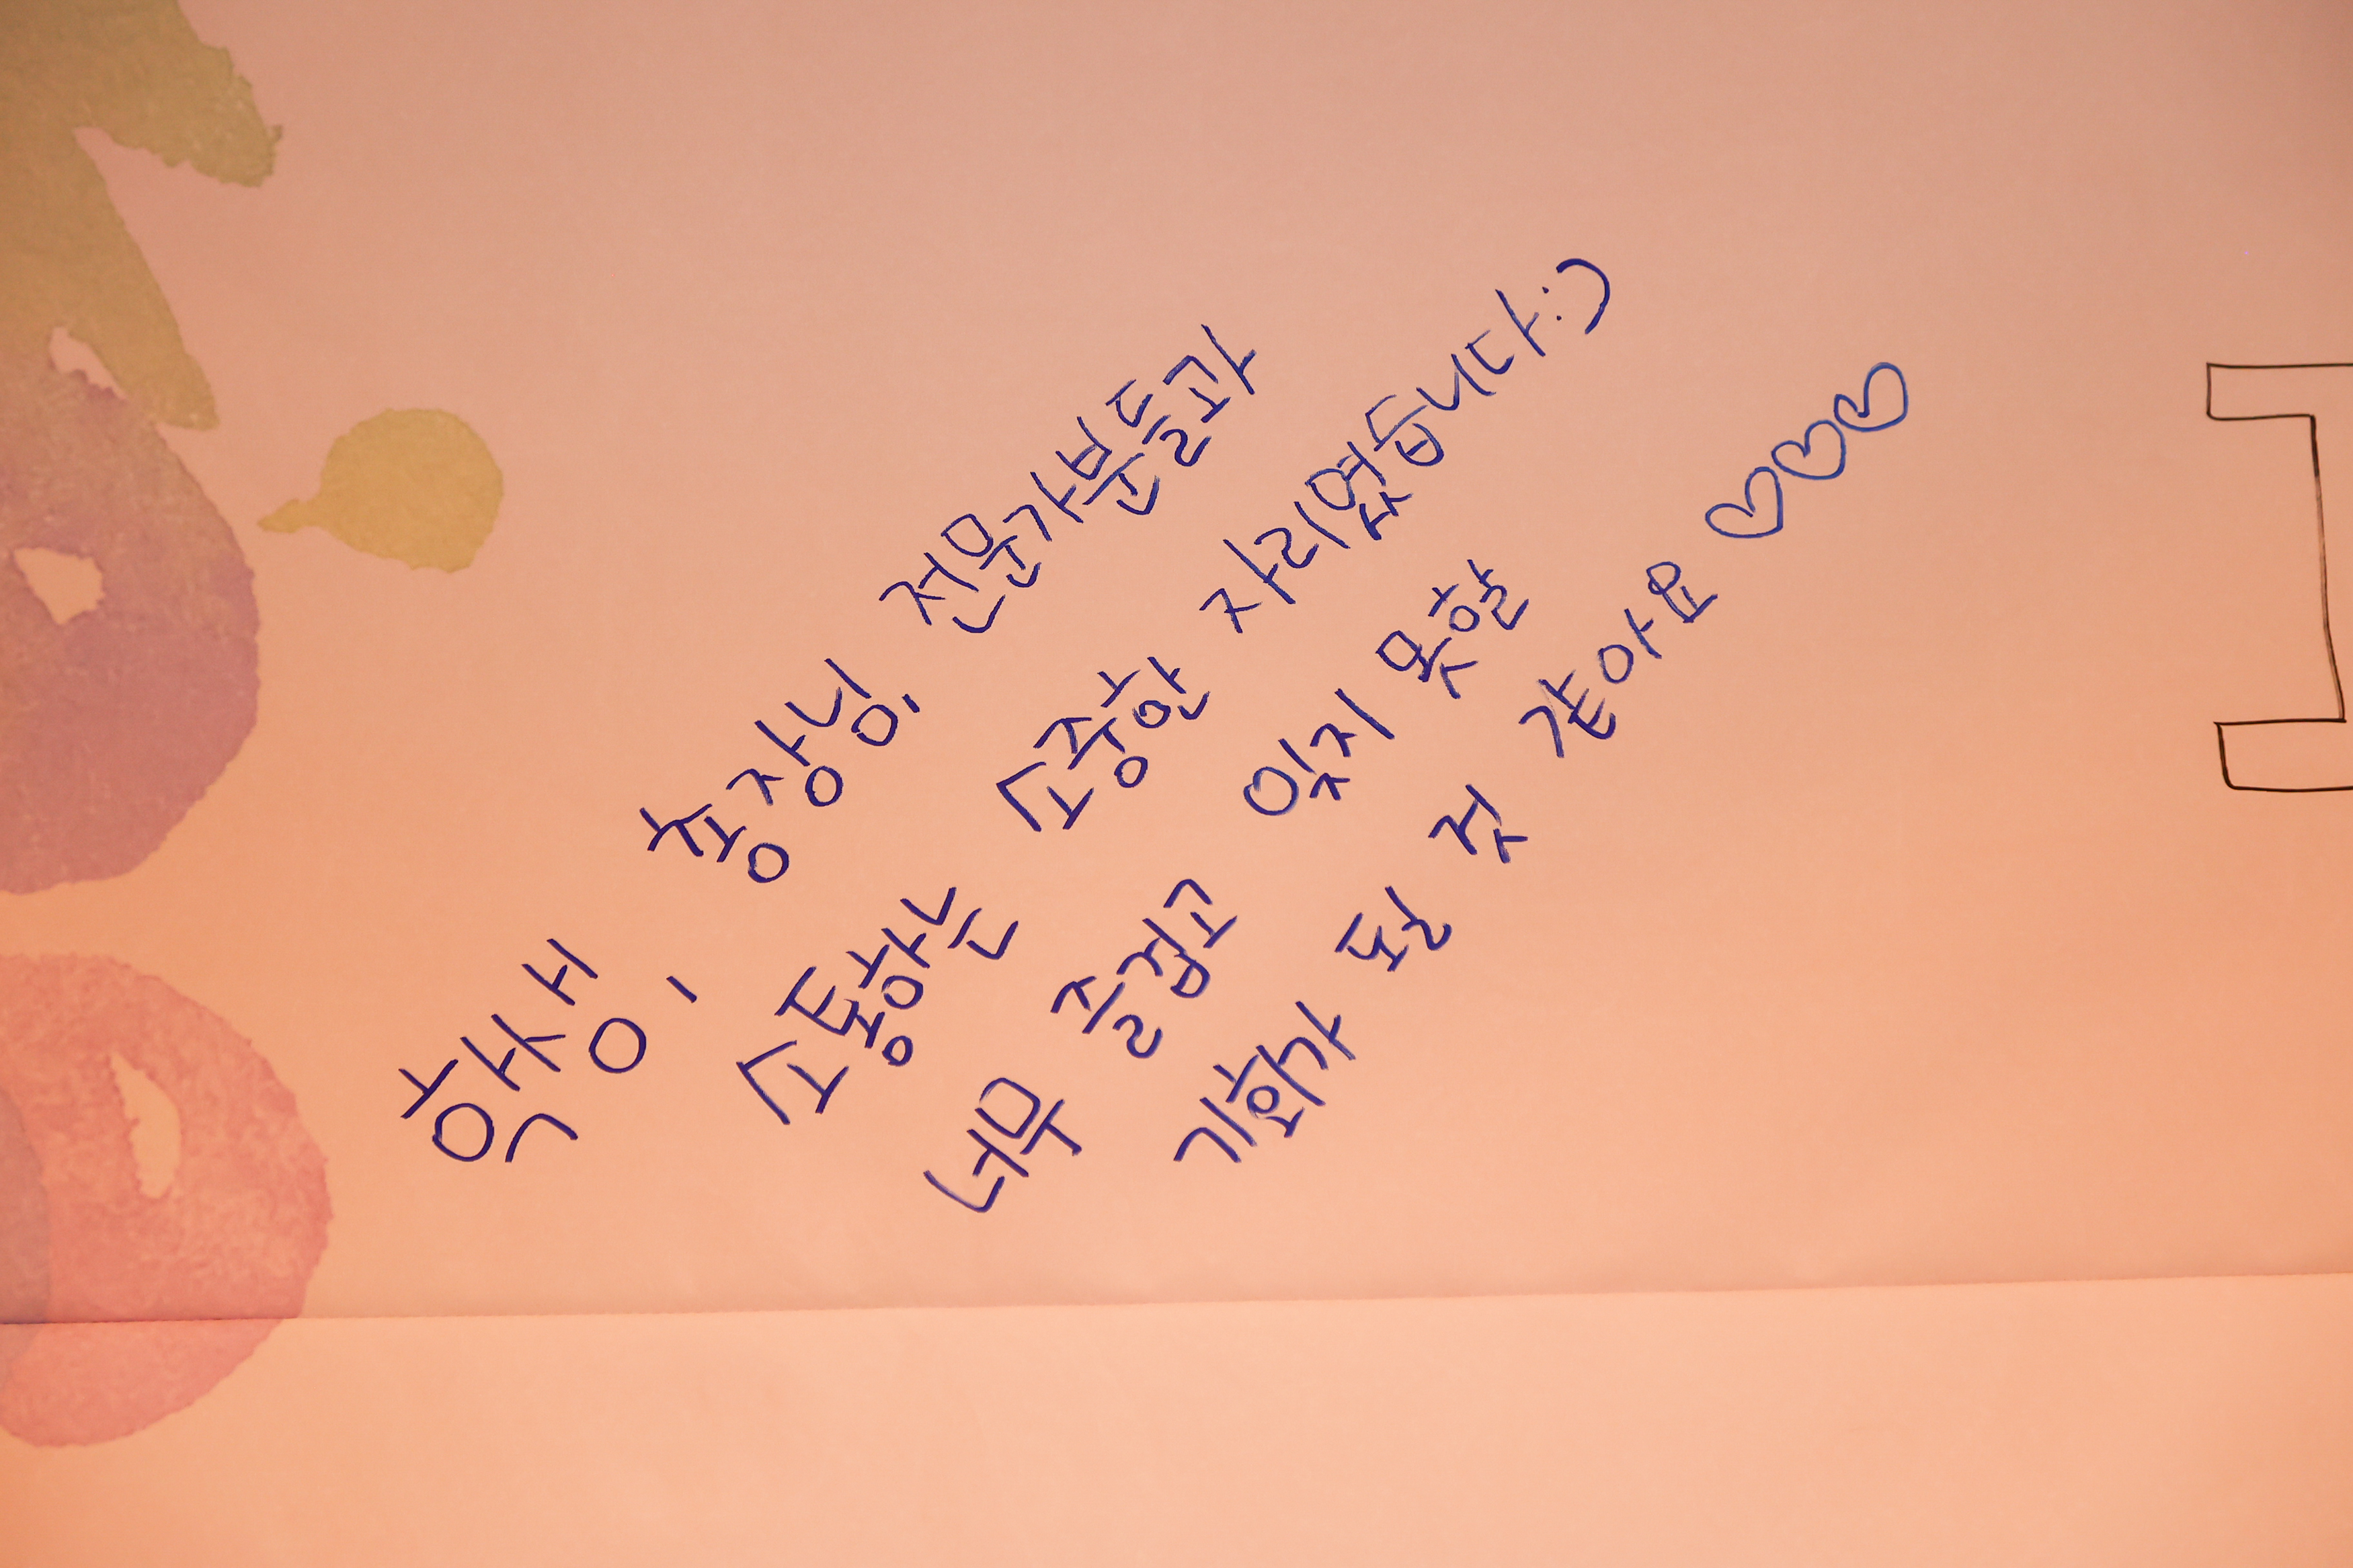 학생, 총장님, 전문가분들과
소통하는 소중한 자리였습니다:)
너무 즐겁고 잊지 못할
기회가 된 것 같아요 ♡♡♡